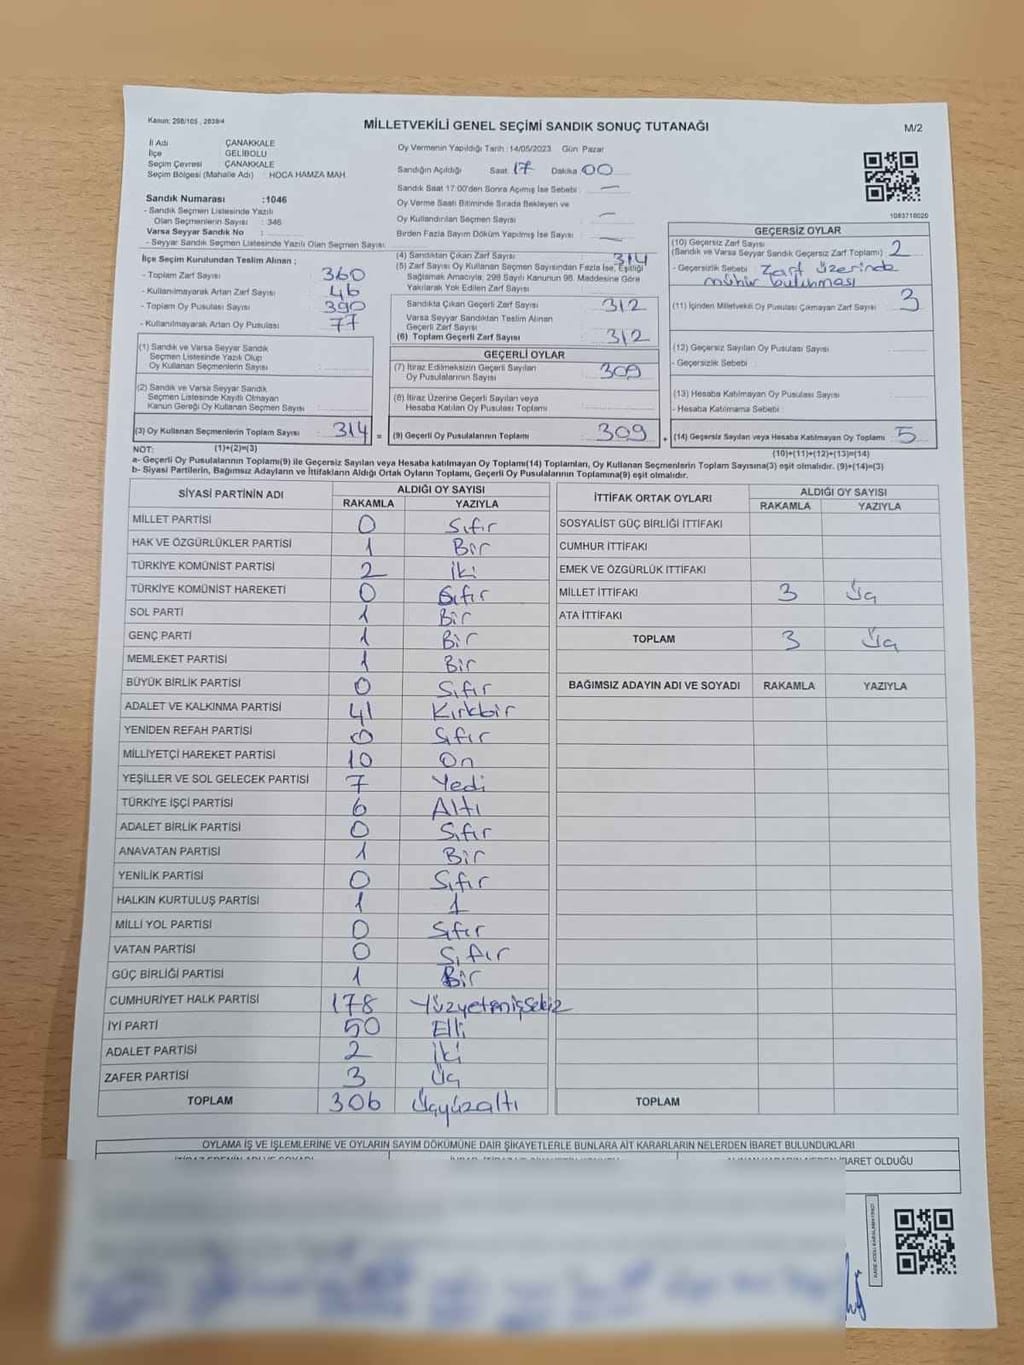 Kanun: 298/105 , 2839/4
MİLLETVEKİLİ GENEL SEÇİMİ SANDIK SONUÇ TUTANAĞI
M/2
İl Adı ÇANAKKALE
İlçe GELİBOLU
Seçim Çevresi ÇANAKKALE
Seçim Bölgesi (Mahalle Adı) : HOCA HAMZA MAH.
Sandık Numarası :1046
- Sandık Seçmen Listesinde Yazılı
Olan Seçmenlerin Sayısı : 346
Varsa Seyyar Sandık No :
- Seyyar Sandık Seçmen Listesinde Yazılı Olan Seçmen Sayısı
Oy Vermenin Yapıldığı Tarih : 14/05/2023 Gün Pazar
Sandığın Açıldığı Saat 17 Dakika 00
Sandık Saat 17:00'den Sonra Açılmış İse Sebebi : —
Oy Verme Saati Bitiminde Sırada Bekleyen ve
Oy Kullandırılan Seçmen Sayısı —
Birden Fazla Sayım Döküm Yapılmış İse Sayısı —
1083718020
İlçe Seçim Kurulundan Teslim Alınan ;
- Toplam Zarf Sayısı 360
- Kullanılmayarak Artan Zarf Sayısı 46
- Toplam Oy Pusulası Sayısı 390
- Kullanılmayarak Artan Oy Pusulası 77
(1) Sandık ve Varsa Seyyar Sandık
Seçmen Listesinde Yazılı Olup
Oy Kullanan Seçmenlerin Sayısı
(2) Sandık ve Varsa Seyyar Sandık
Seçmen Listesinde Kayıtlı Olmayan
Kanun Gereği Oy Kullanan Seçmen Sayısı
(3) Oy Kullanan Seçmenlerin Toplam Sayısı 314 =
(4) Sandıktan Çıkan Zarf Sayısı 314
(5) Zarf Sayısı Oy Kullanan Seçmen Sayısından Fazla İse, Eşitliği
Sağlamak Amacıyla, 298 Sayılı Kanunun 98. Maddesine Göre
Yakılarak Yok Edilen Zarf Sayısı
Sandıkta Çıkan Geçerli Zarf Sayısı 312
Varsa Seyyar Sandıktan Teslim Alınan
Geçerli Zarf Sayısı
(6) Toplam Geçerli Zarf Sayısı 312
GEÇERLİ OYLAR
(7) İtiraz Edilmeksizin Geçerli Sayılan
Oy Pusulalarının Sayısı 309
(8) İtiraz Üzerine Geçerli Sayılan veya
Hesaba Katılan Oy Pusulası Toplamı
(9) Geçerli Oy Pusulalarının Toplamı 309 +
GEÇERSİZ OYLAR
(10) Geçersiz Zarf Sayısı
(Sandık ve Varsa Seyyar Sandık Geçersiz Zarf Toplamı) 2
- Geçersizlik Sebebi Zarf üzerinde
mühür bulunması
(11) İçinden Milletvekili Oy Pusulası Çıkmayan Zarf Sayısı 3
(12) Geçersiz Sayılan Oy Pusulası Sayısı
- Geçersizlik Sebebi
(13) Hesaba Katılmayan Oy Pusulası Sayısı
- Hesaba Katılmama Sebebi
(14) Geçersiz Sayılan veya Hesaba Katılmayan Oy Toplamı 5
NOT: (1)+(2)=(3) (10)+(11)+(12)+(13)=(14)
a- Geçerli Oy Pusulalarının Toplamı(9) ile Geçersiz Sayılan veya Hesaba katılmayan Oy Toplamı(14) Toplamları, Oy Kullanan Seçmenlerin Toplam Sayısına(3) eşit olmalıdır. (9)+(14)=(3)
b- Siyasi Partilerin, Bağımsız Adayların ve İttifakların Aldığı Ortak Oyların Toplamı, Geçerli Oy Pusulalarının Toplamına(9) eşit olmalıdır.
SİYASİ PARTİNİN ADI ALDIĞI OY SAYISI
RAKAMLA YAZIYLA
MİLLET PARTİSİ 0 Sıfır
HAK VE ÖZGÜRLÜKLER PARTİSİ 1 Bir
TÜRKİYE KOMÜNİST PARTİSİ 2 İki
TÜRKİYE KOMÜNİST HAREKETİ 0 Sıfır
SOL PARTİ 1 Bir
GENÇ PARTİ 1 Bir
MEMLEKET PARTİSİ 1 Bir
BÜYÜK BİRLİK PARTİSİ 0 Sıfır
ADALET VE KALKINMA PARTİSİ 41 Kırkbir
YENİDEN REFAH PARTİSİ 0 Sıfır
MİLLİYETÇİ HAREKET PARTİSİ 10 On
YEŞİLLER VE SOL GELECEK PARTİSİ 7 Yedi
TÜRKİYE İŞÇİ PARTİSİ 6 Altı
ADALET BİRLİK PARTİSİ 0 Sıfır
ANAVATAN PARTİSİ 1 Bir
YENİLİK PARTİSİ 0 Sıfır
HALKIN KURTULUŞ PARTİSİ 1 1
MİLLİ YOL PARTİSİ 0 Sıfır
VATAN PARTİSİ 0 Sıfır
GÜÇ BİRLİĞİ PARTİSİ 1 Bir
CUMHURİYET HALK PARTİSİ 178 Yüzyetmişsekiz
İYİ PARTİ 50 Elli
ADALET PARTİSİ 2 İki
ZAFER PARTİSİ 3 Üç
TOPLAM 306 Üçyüzaltı
İTTİFAK ORTAK OYLARI ALDIĞI OY SAYISI
RAKAMLA YAZIYLA
SOSYALİST GÜÇ BİRLİĞİ İTTİFAKI
CUMHUR İTTİFAKI
EMEK VE ÖZGÜRLÜK İTTİFAKI
MİLLET İTTİFAKI 3 Üç
ATA İTTİFAKI
TOPLAM 3 Üç
BAĞIMSIZ ADAYIN ADI VE SOYADI RAKAMLA YAZIYLA
TOPLAM
OYLAMA İŞ VE İŞLEMLERİNE VE OYLARIN SAYIM DÖKÜMÜNE DAİR ŞİKAYETLERLE BUNLARA AİT KARARLARIN NELERDEN İBARET BULUNDUKLARI
OLDUĞU